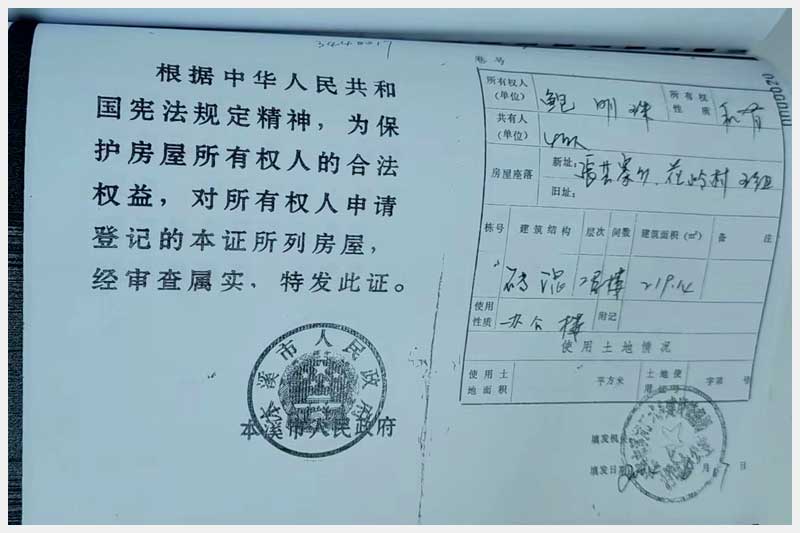 根据中华人民共和
国宪法规定精神，为保
护房屋所有权人的合法
权益，对所有权人申请
登记的本证所列房屋，
经审查属实，特发此证。
本溪市人民政府
本溪市人民政府
所有权人
(单位)
鲍明珠
所有权
性质
私有
共有人
(单位)
房屋座落
新址:
村
旧址:
栋号
建筑结构
层次
间数
建筑面积(㎡)
备注
砖混
2层
楼
219.14
使用
性质
办公楼
附记
使用土地情况
使用土
地面积
平方米
土地使
用证号
字第 号
填发机关
填发日期
月
日